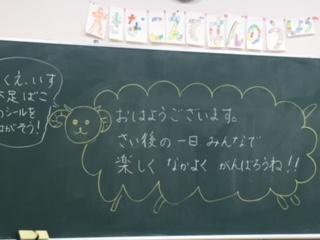 くえ、いす
足ばこ
のシールを
はがそう!
おはようございます。
さい後の一日みんなで
楽しく なかよく がんばろうね!!